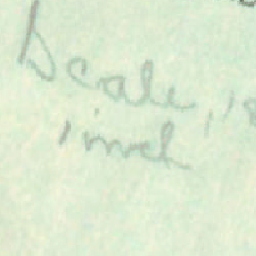 Scale,
1 inch